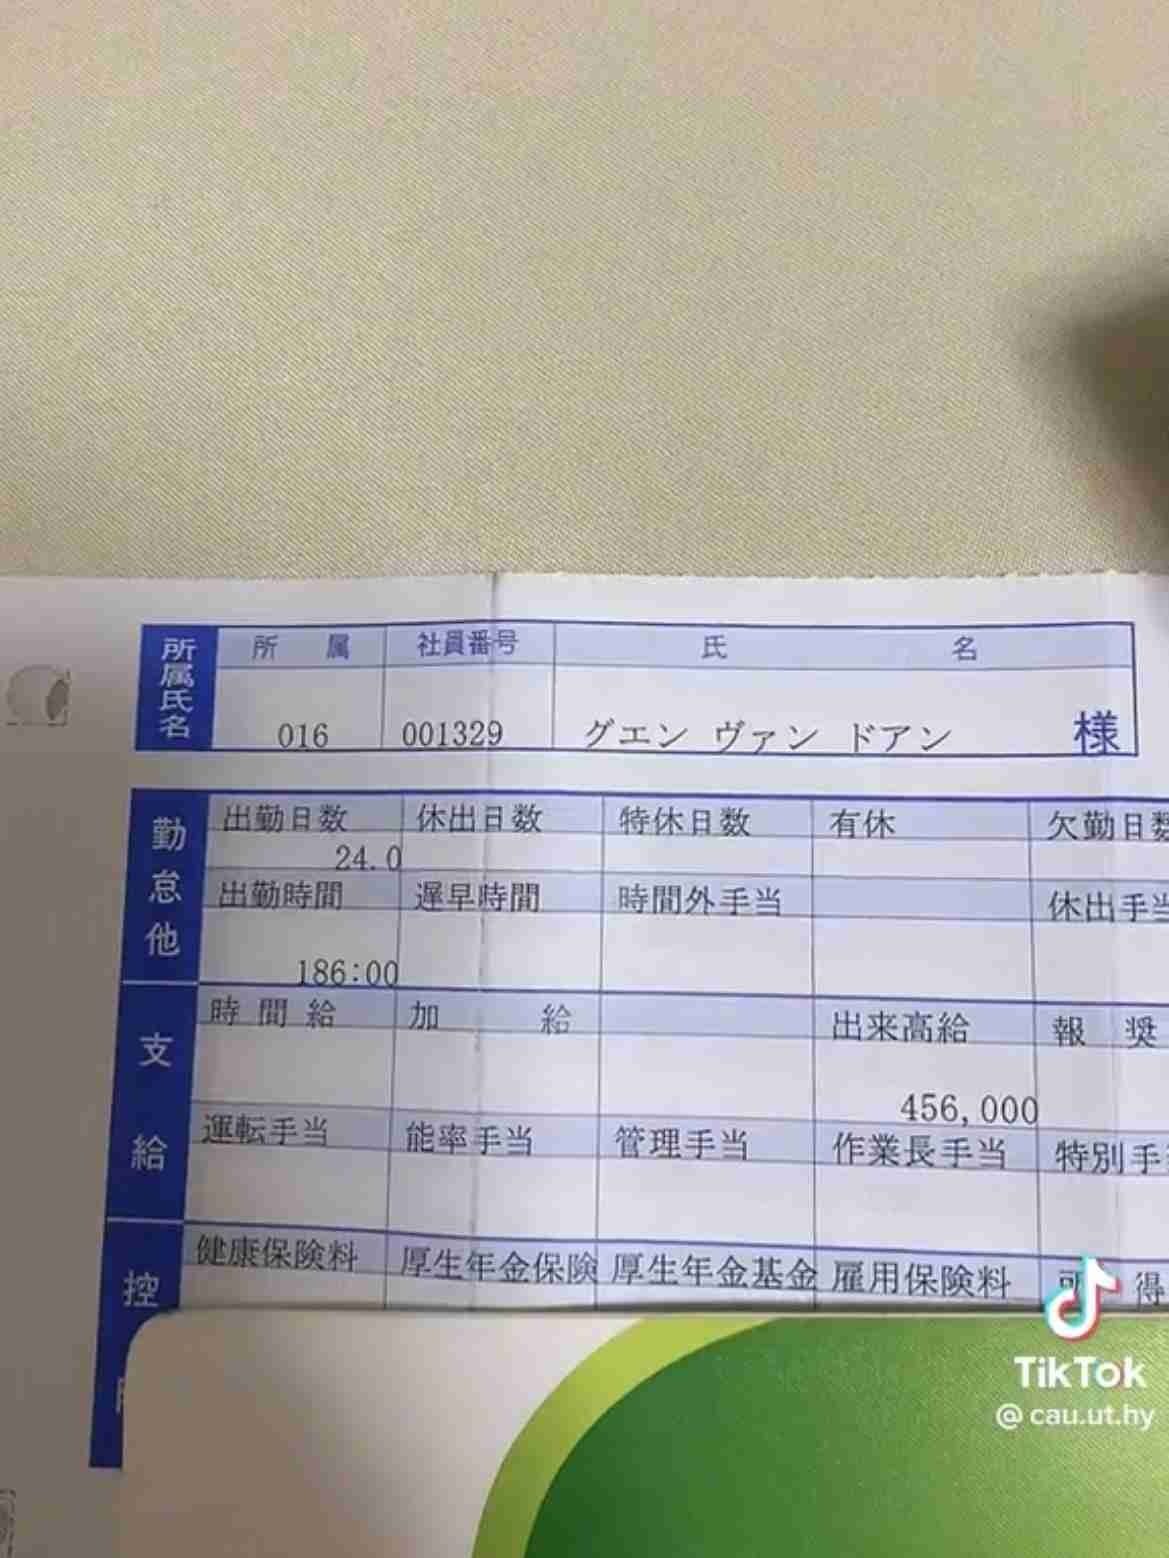 所属氏名
所 属 社員番号 氏 名
016 001329 グエン ヴァン ドアン 様
勤怠他
出勤日数 休出日数 特休日数 有休 欠勤日数
24.0
出勤時間 遅早時間 時間外手当 休出手当
186:00
支給
時間給 加 給 出来高給 報 奨
456,000
運転手当 能率手当 管理手当 作業長手当 特別手
控
健康保険料 厚生年金保険 厚生年金基金 雇用保険料 得
TikTok
@cau.ut.hy